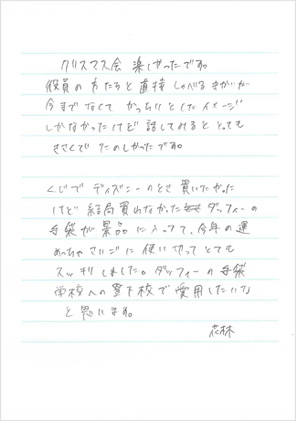 クリスマス会 楽しかったです。
役員の方たちと直接しゃべるきかいが
今までなくて かっちりとしたイメージ
しかなかったけど 話してみると とっても
きさくで たのしかったです。
くじで ディズニーのとき 買いたかった
けど 結局買わなかった ダッフィーの
手袋が景品に入ってて、今年の運
めっちゃ さいごに 使い切って とても
スッキリしました。ダッフィーの手袋
学校への登下校で愛用したいな
と思います。
花林